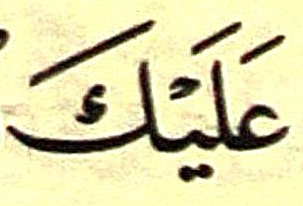 عَلَيْكَ